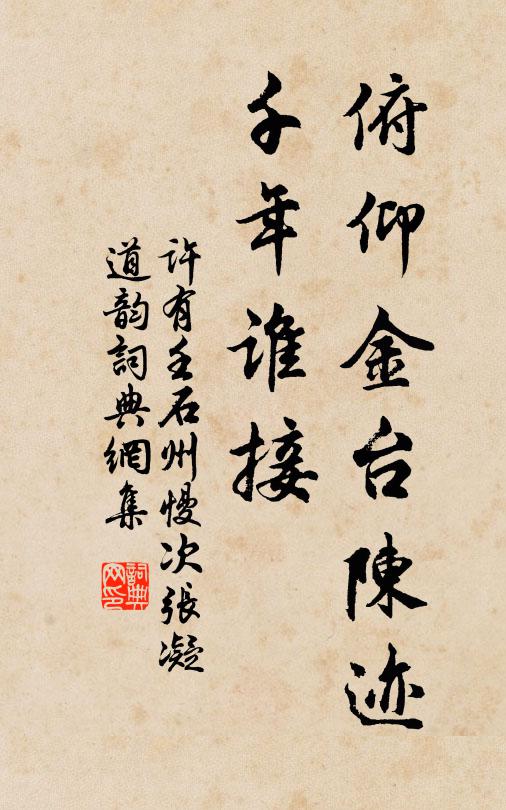 俯仰金台陳迹
千年誰接
許有壬石州慢次張凝
道韵詞典網集
詞典网印